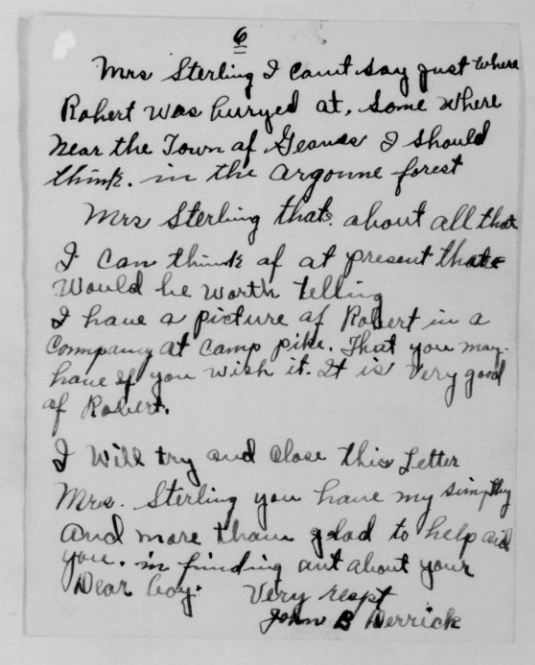 6
Mrs Sterling I cant say just where
Robert was buryed at, some where
near the Town of I should
think. in the argonne forest
Mrs Sterling thats. about all that
I can think of at present that
Would be worth telling
I have a picture of Robert in a
Commpany at camp pike. That you may.
have if you wish it. It is very good
of Robert.
I Will try and close this Letter
Mrs. Sterling you have my simpthy
and more than glad to help aid
you. in finding out about your
Dear boy. Very respt
John B Derrick